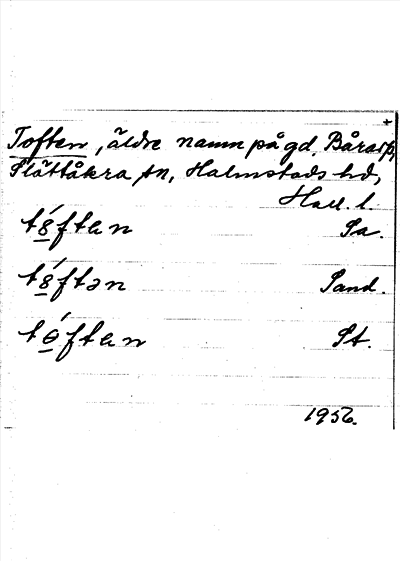 Toften, äldre namn på gd. Båraryd,
Slättåkra sn, Halmstads hd,
Hall. l.
tȣ́ften Sa.
tȣ́ftən Sand.
tɵ́ften St.
1956.